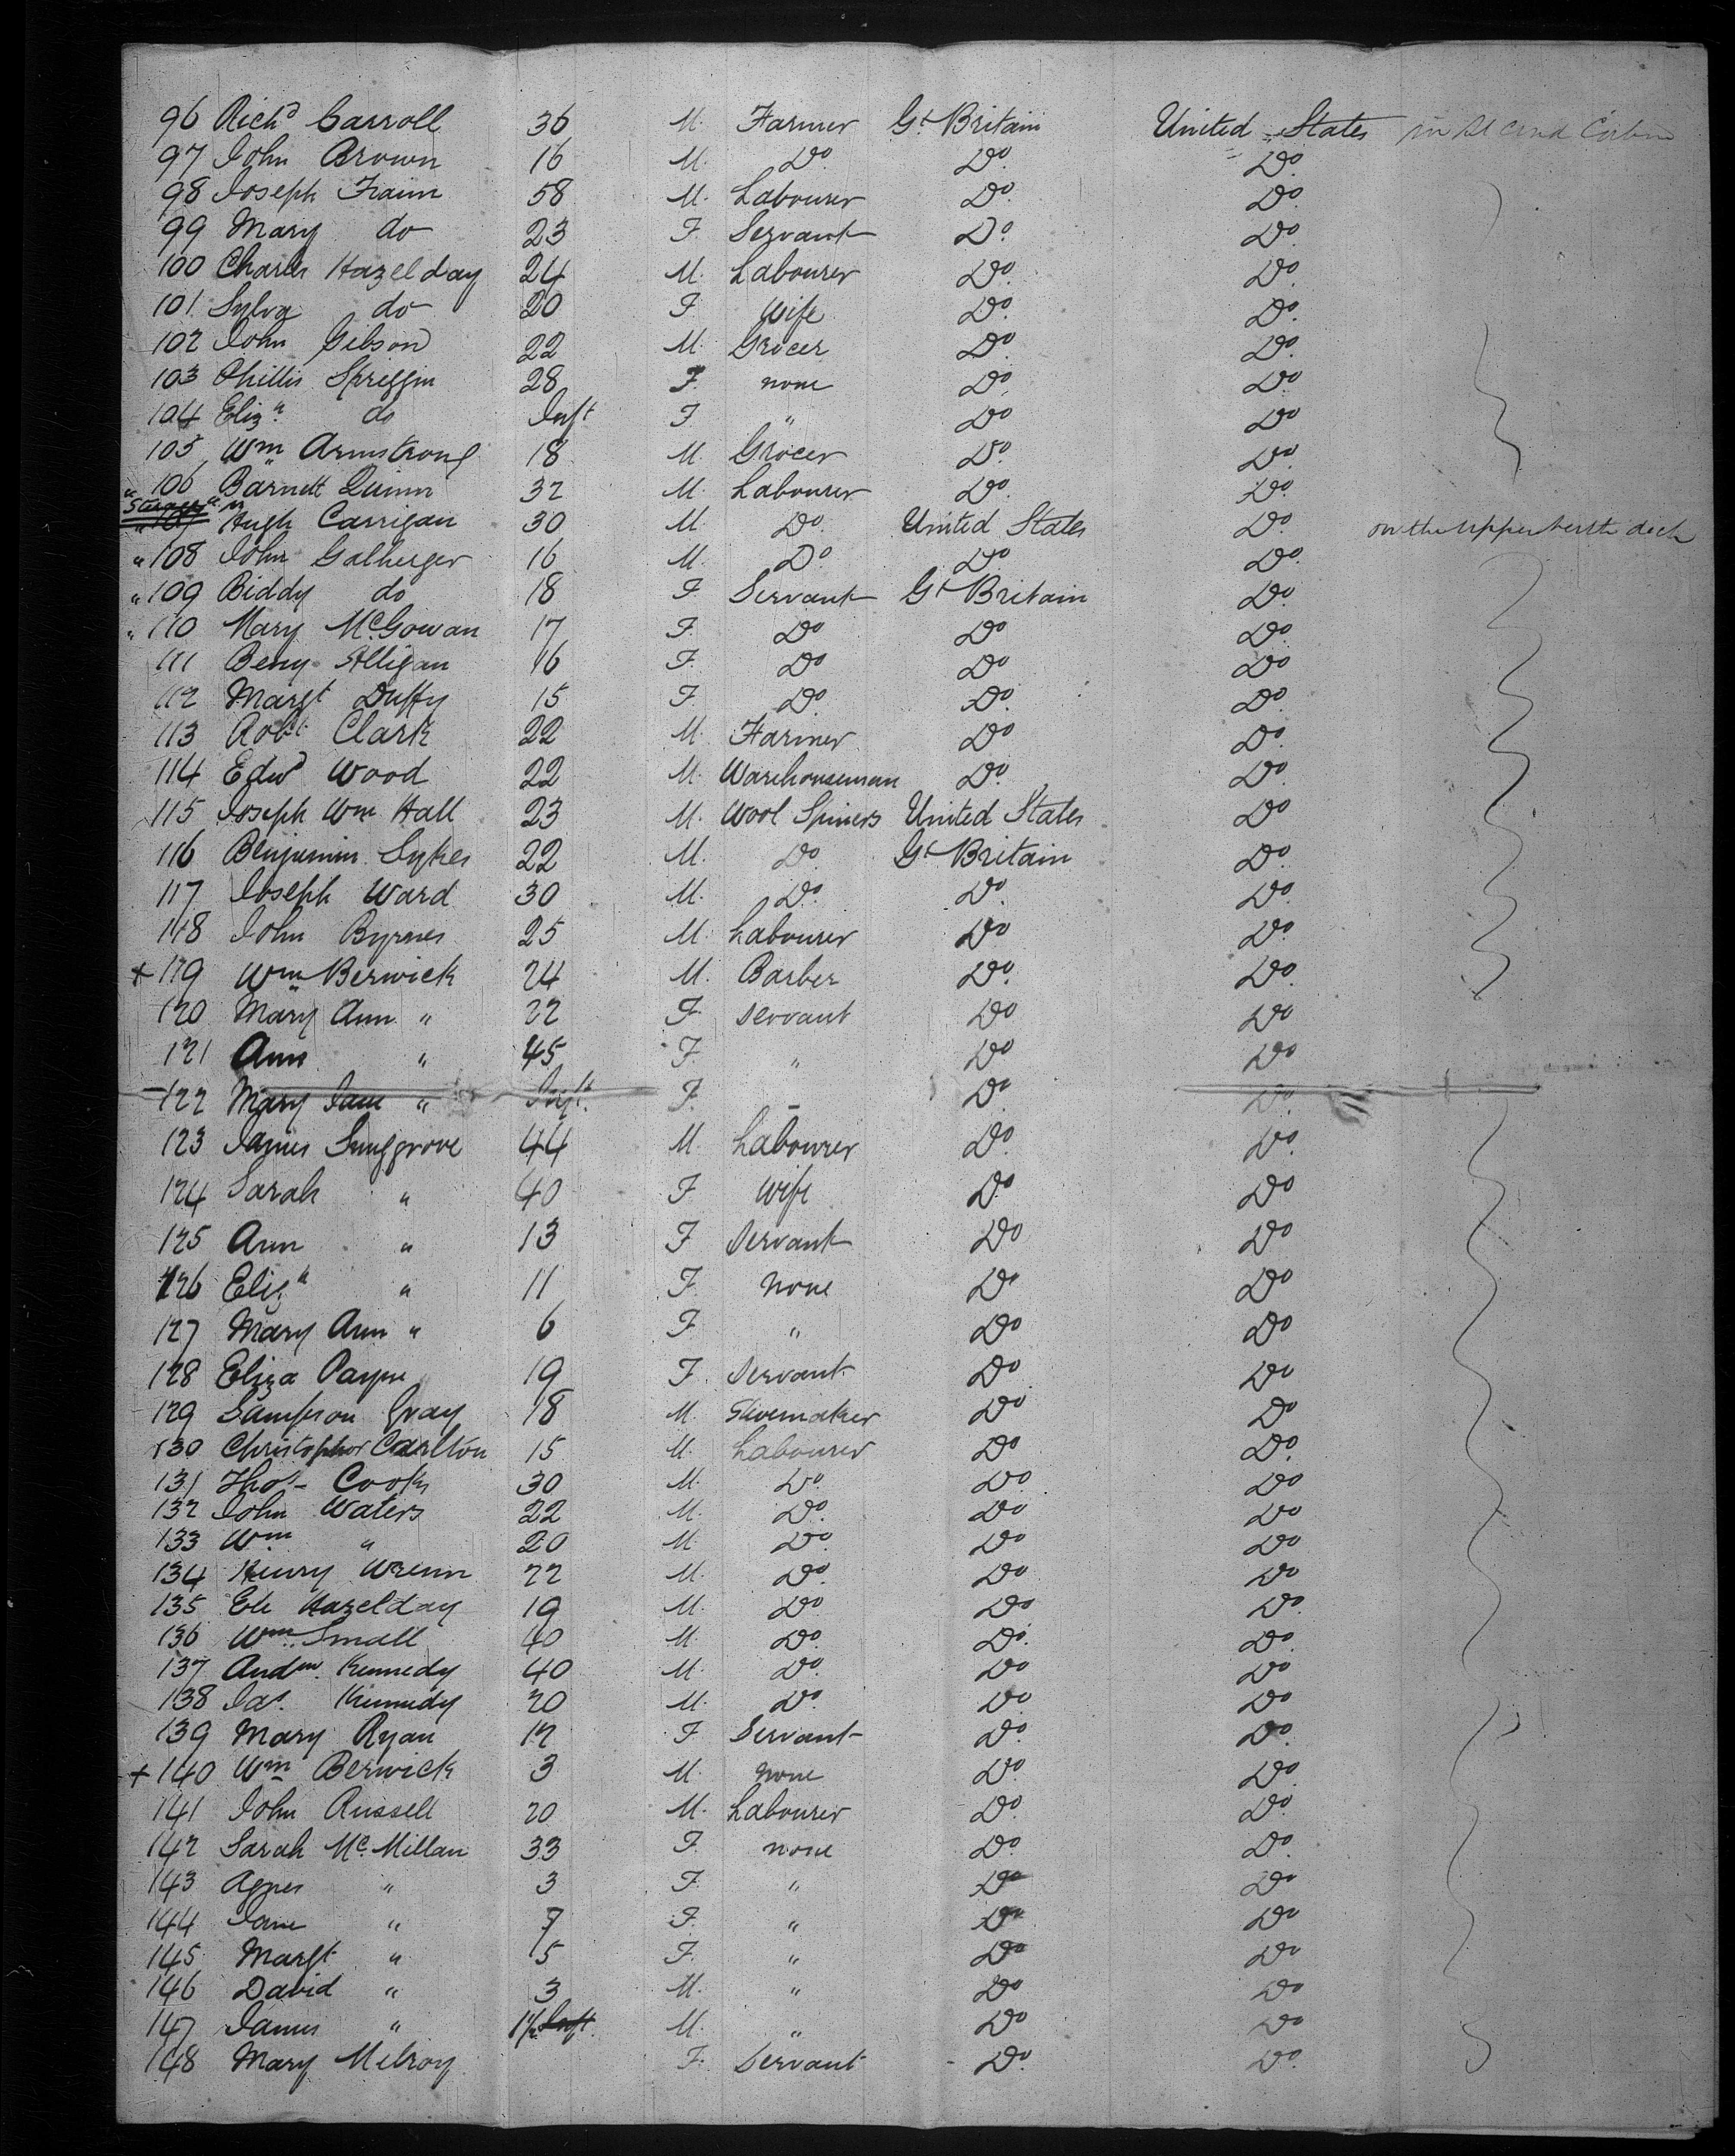 96 Richd Carroll 36 M. Farmer Gt Britain United States in second Cabin
97 John Brown 16 M. Do. Do. Do.
98 Joseph Fraim 58 M. Labourer Do. Do.
99 Mary do 23 F. Servant Do. Do.
100 Charles Hazelday 24 M. Labourer Do. Do.
101 Sylva do 20 F Wife Do. Do.
102 John Gibson 22 M. Grocer Do. Do.
103 Phillis Spreggin 28 F. none Do. Do.
104 Eliza do Inft F " Do Do
105 Wm Armstrong 18 M. Grocer Do. Do.
" 106 Barnett Quinn 32 M. Labourer Do. Do.
Steerage
" 107 Hugh Carrigan 30 M. Do. United States Do. on the upper berth deck
" 108 John Galherger 16 M. Do Do. Do.
" 109 Biddy do 18 F Servant Gt Britain Do.
" 110 Mary McGowan 17 F. Do Do Do.
111 Beny Alligan 16 F. Do Do Do
112 Margt Duffy 15 F. Do. Do. Do.
113 Robt Clark 22 M. Farmer Do Do.
114 Edwd Wood 22 M. Warehouseman Do. Do.
115 Joseph Wm Hall 23 M. Wool Spiners United States Do
116 Benjamin Sykes 22 M. Do Gt Britain Do.
117 Joseph Ward 30 M. Do. Do. Do.
118 John Byrnes 25 M. Labourer Do Do.
+ 119 Wm Berwick 24 M. Barber Do. Do.
120 Mary Ann " 22 F. Servant Do Do
121 Ann " 45 F. " Do Do
122 Mary Jane " Inft. F. – Do Do.
123 James 44 M. Labourer Do. Do.
124 Sarah " 40 F Wife Do Do
125 Ann " 13 F Servant Do Do
126 Eliza " 11 F. None Do Do
127 Mary Ann " 6 F " Do Do
128 Eliza Payne 19 F. Servant Do Do
129 Sampson Gray 18 M. Shoemaker Do Do
130 Christopher Carlton 15 M. Labourer Do Do.
131 Thos Cook 30 M. Do. Do Do
132 John Waters 22 M. Do. Do Do
133 Wm " 20 M. Do. Do Do
134 Henry Wrenn 22 M. Do. Do Do
135 Eli Hazelday 19 M. Do Do Do.
136 Wm Small 40 M. Do. Do. Do.
137 Andw. Kennedy 40 M. Do. Do Do
138 Jas. Kennedy 20 M. Do Do Do
139 Mary Ryan 12 F Servant Do. Do.
+ 140 Wm Berwick 3 M. none Do. Do.
141 John Russell 20 M. Labourer Do. Do.
142 Sarah McMillan 33 F. none Do. Do.
143 Agnes " 3 F. " Do Do
144 Jane " 7 F. " Do Do
145 Margt " 5 F. " Do Do
146 David " 3 M. " Do Do
147 James " 1½ Inft. M. " Do Do
148 Mary Milroy F. Servant Do. Do.